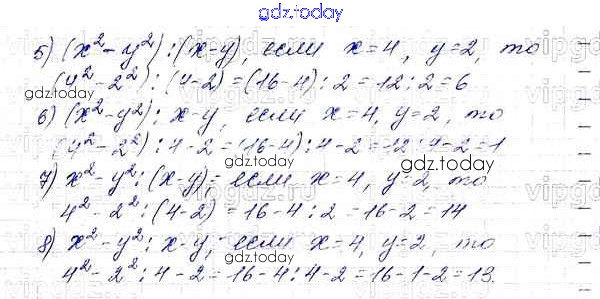 gdz.today
5) (x²-y²):(x-y), если x=4, y=2, то
(4²-2²):(4-2)=(16-4):2=12:2=6
gdz.today
6) (x²-y²):x-y, если x=4, y=2, то
(4²-2²):4-2=(16-4):4-2=12:4-2=1
gdz.today
gdz.today
7) x²-y²:(x-y), если x=4, y=2, то
4²-2²:(4-2)=16-4:2=16-2=14
gdz.today
8) x²-y²:x-y, если x=4, y=2, то
4²-2²:4-2=16-4:4-2=16-1-2=13.